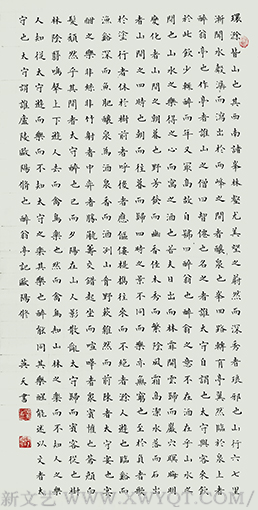 環滁皆山也其西南諸峯林壑尤美望之蔚然而深秀者琅邪也山行六七里
漸聞水聲潺潺而瀉出於兩峯之間者釀泉也峯回路轉有亭翼然臨於泉上者
醉翁亭也作亭者誰山之僧曰智僊也名之者誰太守自謂也太守與客來飲
於此飲少輒醉而年又最高故自號曰醉翁也醉翁之意不在酒在乎山水之
間也山水之樂得之心而寓之酒也若夫日出而林霏開雲歸而巖穴暝晦明
變化者山間之朝暮也野芳發而幽香佳木秀而繁陰風霜高潔水落而石出
者山間之四時也朝而往暮而歸四時之景不同而樂亦無窮也至於負者歌
於塗行者休於樹前者呼後者應傴僂提攜往來而不絕者滁人遊也臨谿而
漁谿深而魚肥釀泉為酒泉香而酒洌山肴野蔌雜然而前陳者太守宴也宴
酣之樂非絲非竹射者中弈者勝觥籌交錯起坐而喧嘩者衆賓懽也蒼顏白
髮頹然乎其間者太守醉也已而夕陽在山人影散亂太守歸而賓客從也樹
林陰翳鳴聲上下遊人去而禽鳥樂也然而禽鳥知山林之樂而不知人之樂
人知從太守遊而樂而不知太守之樂其樂也醉能同其樂醒能述以文者太
守也太守謂誰廬陵歐陽修也 醉翁亭記歐陽修 英天書
新文艺 WWW.XWYQT.COM